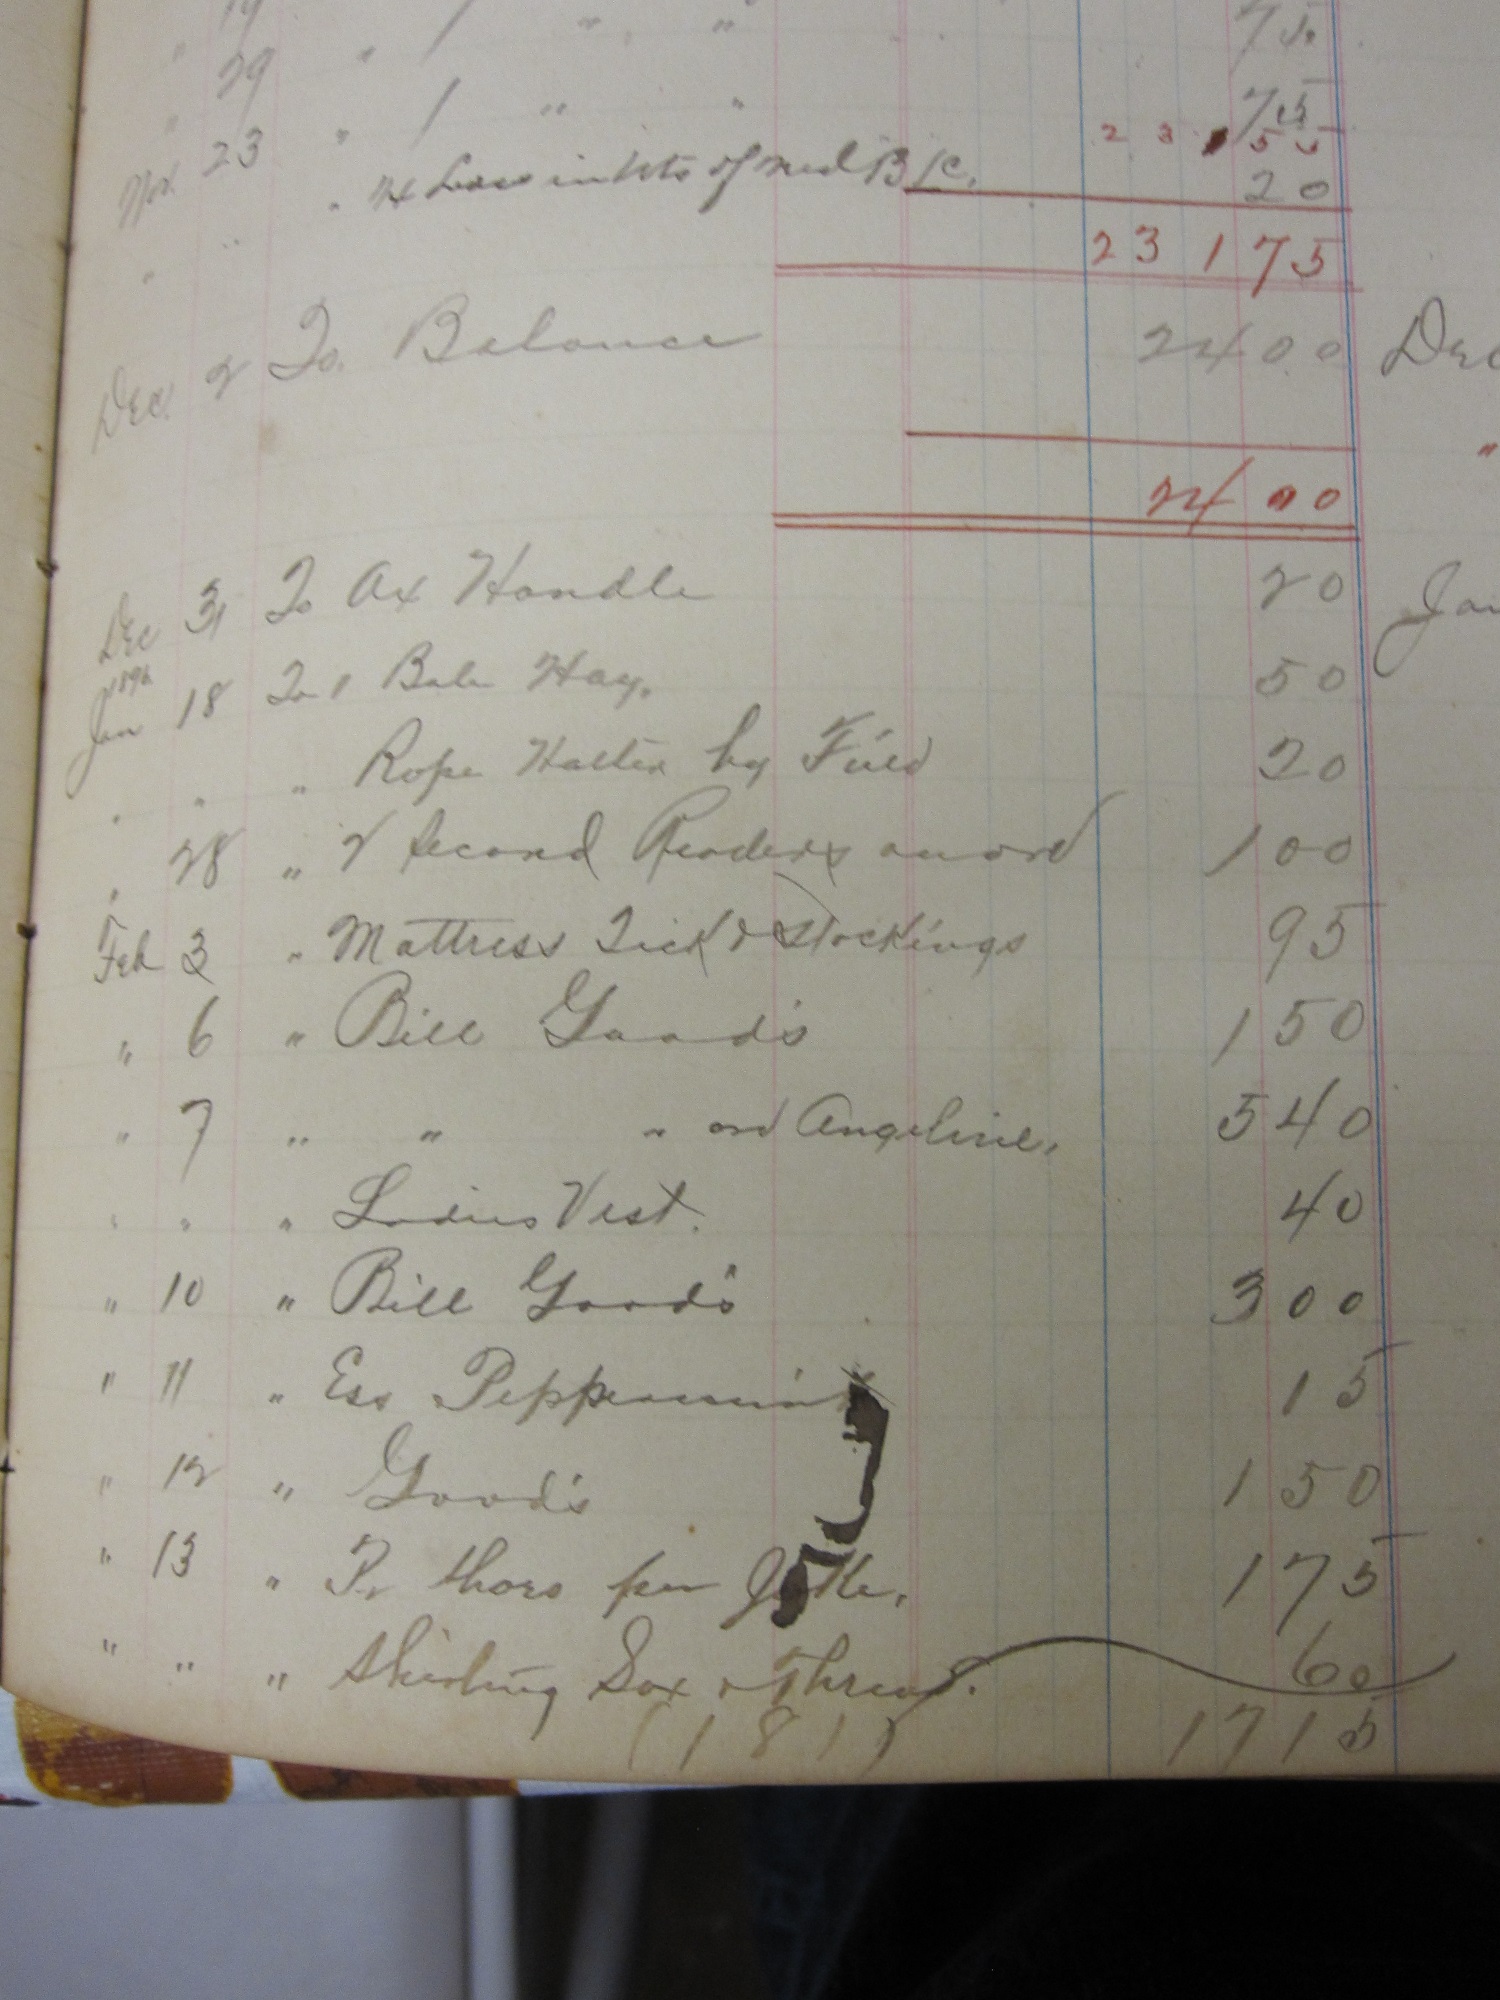 " 19 " 1 " " 75.
" 29 " 1 " " 75
Nov. 23 23 1 55
" " " in Wts of B/C. 20
23 1 75
Dec. 2 To Balance 24 00 Dec
24 00
Dec 31 To Ax Handle 20 Jan
1896
Jan 18 To 1 Bale Hay. 50
" " " Rope Halter by Fred 20
" 28 " 2 Second Readers on ord 1 00
Feb 3 " Mattress Tick & Stockings 95
" 6 " Bill Goods 1 50
" 7 " " " ord Angeline. 5 40
" " " Ladies Vest. 40
" 10 " Bill Goods 3 00
" 11 " Ess Peppermint 15
" 12 " Goods 1 50
" 13 " Pr Shoes per 1 75
" " " Shirting Sox & Thread. 60
(181) 17 15